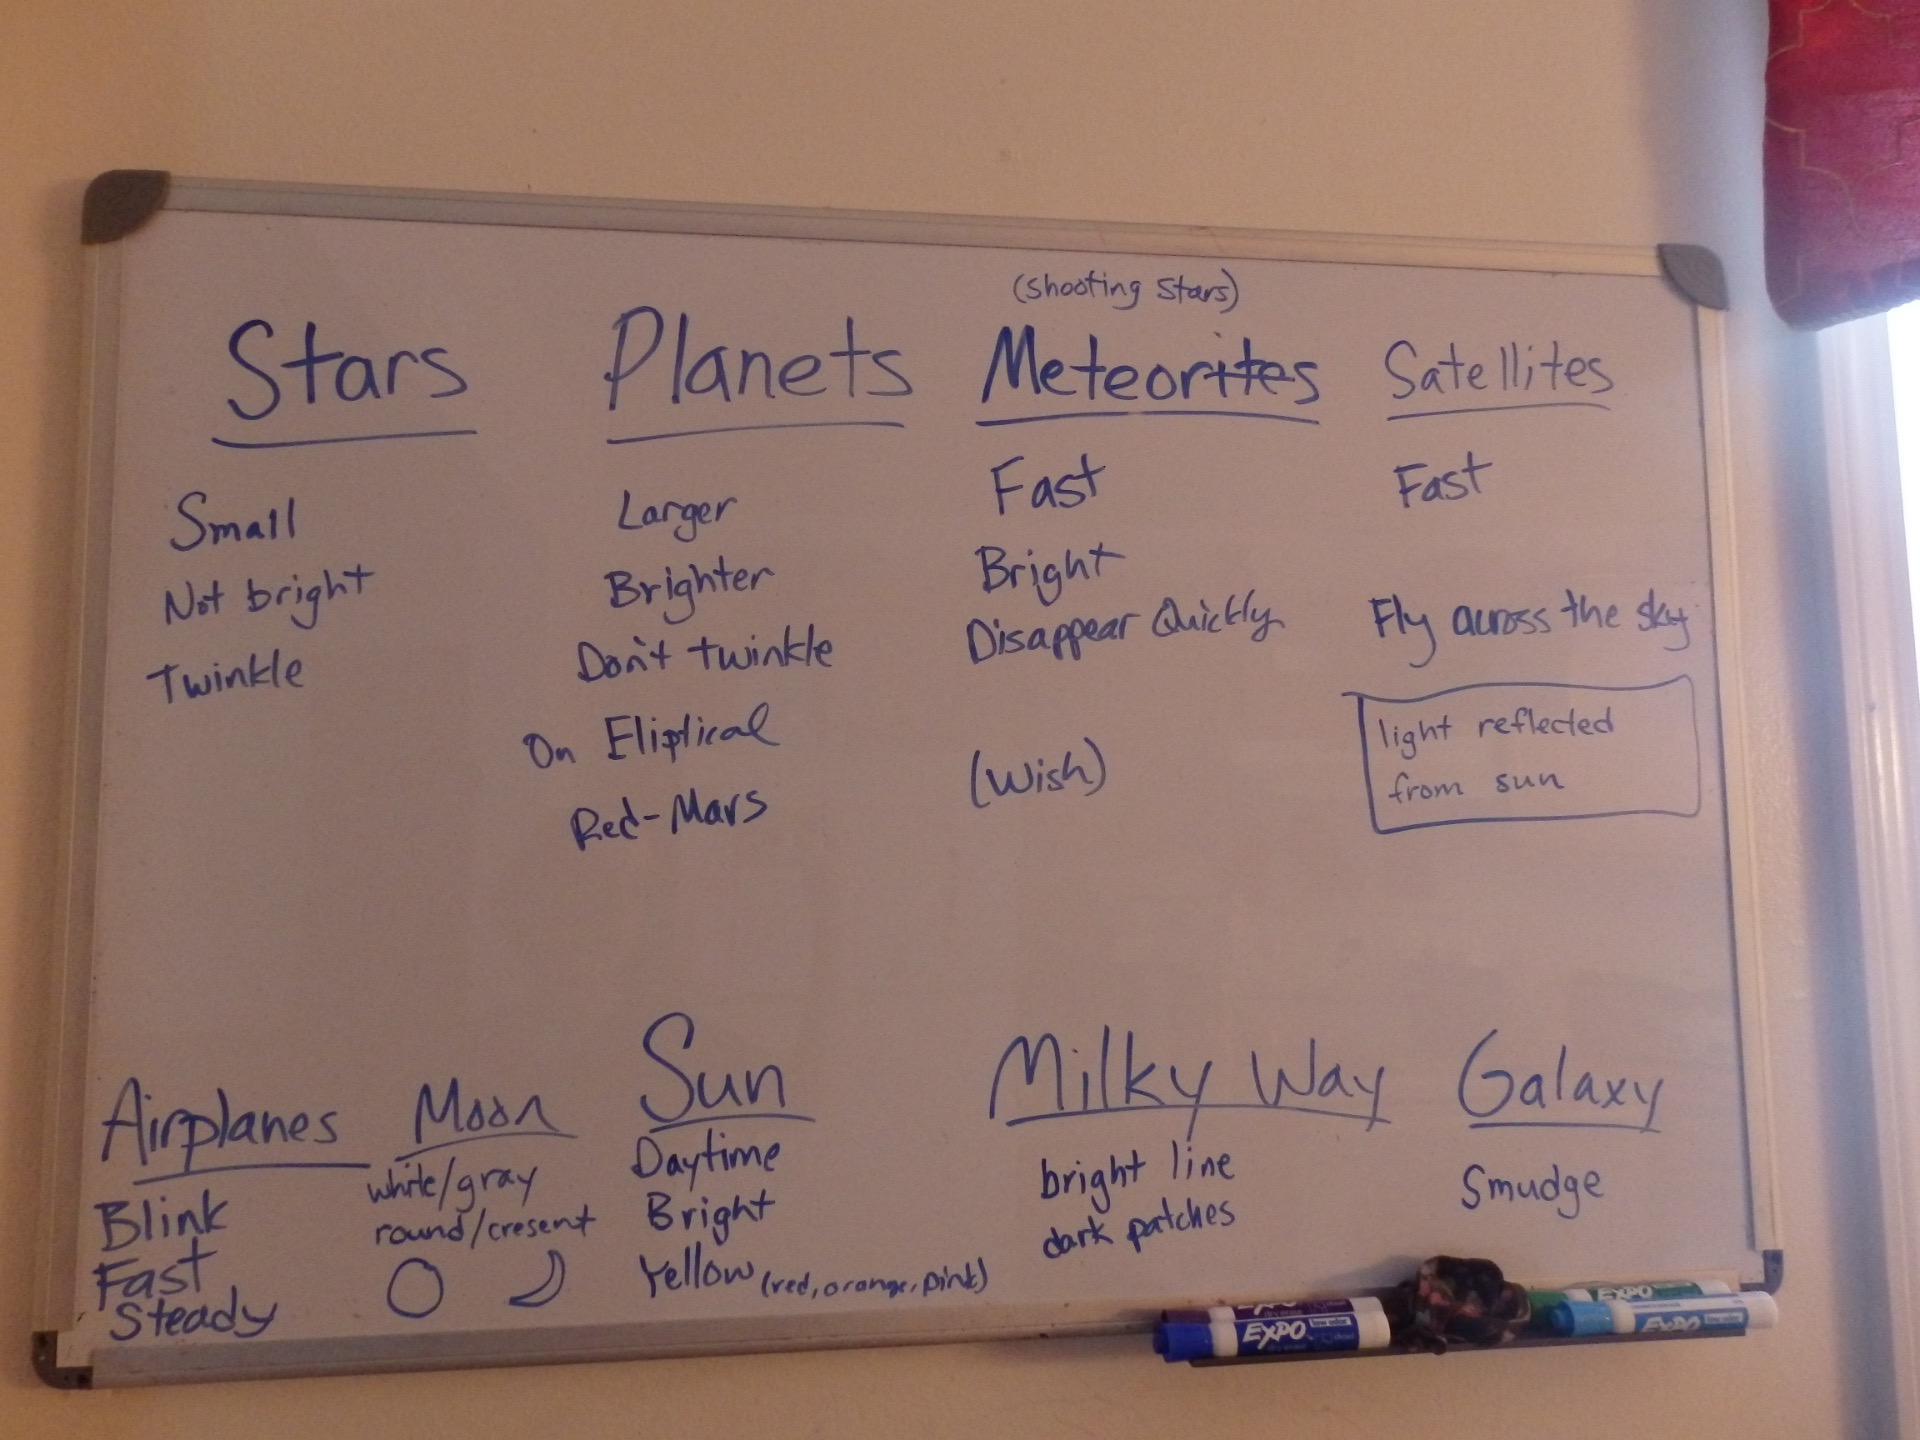 (shooting stars)
Stars
Planets
Meteorites
Satellites
Small
Not bright
Twinkle
Larger
Brighter
Don't twinkle
On Eliptical
Red-Mars
Fast
Bright
Disappear Quickly
(Wish)
Fast
Fly across the sky
light reflected
from sun
Airplanes
Blink
Fast
Steady
Moon
white/gray
round/cresent
Sun
Daytime
Bright
Yellow (red, orange, pink)
Milky Way
bright line
dark patches
Galaxy
Smudge
EXPO
EXPO low odor
EXPO
EXPO